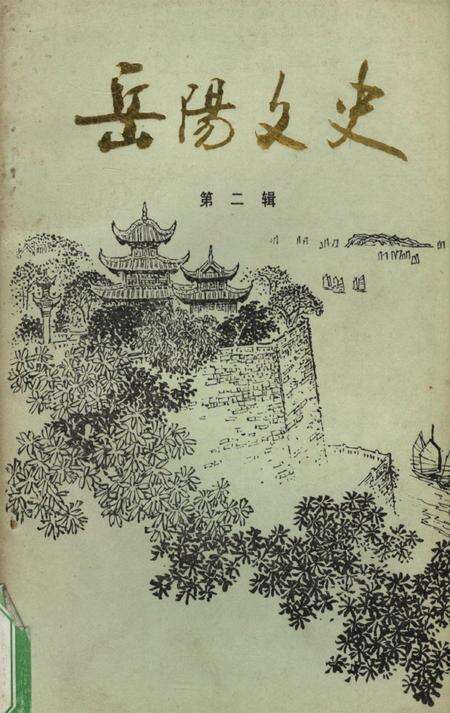 岳陽文史
第二辑